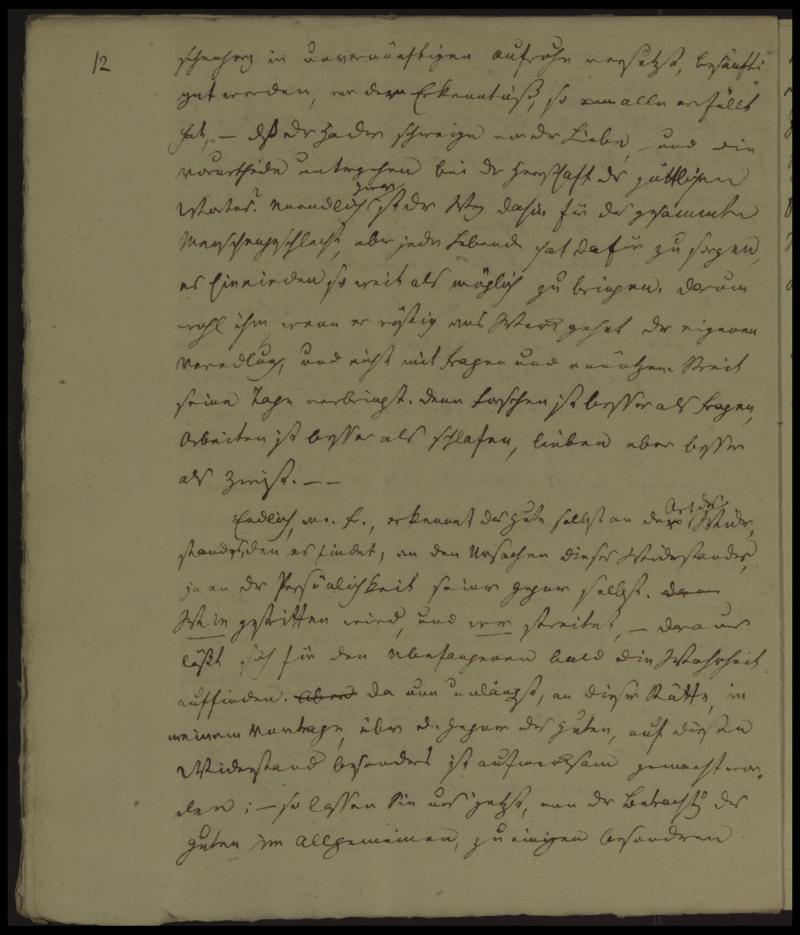 12
in unvernünftigen Aufruhr versetzt, besänfti
gt werden, von dem Erkenntniß, so alle erfüllt
hat, — daß der Hader schweige vor der Liebe, und die
Vorurtheile untergehen bei der Herrschaft des göttlichen
Wortes? Unendlich zwar ist der Weg dahin für das gesammte
Menschengeschlecht, aber jeder Lebende hat dafür zu sorgen,
es hienieden so weit als möglich zu bringen. Darum
wohl ihm, wenn er rüstig ans Werk gehet der eigenen
Veredlung, und nicht mit Fragen und unnützem Streit
seine Tage verbringt. Denn forschen ist besser als fragen,
Arbeiten ist besser als schlafen, lieben aber besser
als Zwist. — —
Endlich, m. F., erkennet das Gute selbst an der Art des Wider¬
standes, den es findet; an den Ursachen dieses Widerstandes,
ja an der Persönlichkeit seiner Gegner selbst.
Wie gestritten wird, und wer streitet, — daraus
läßt sich für den Unbefangenen bald die Wahrheit
auffinden. Da nun unlängst, an dieser Stätte, in
meinem Vortrage, über d. Gegner des Guten, auf diesen
Widerstand besonders ist aufmerksam gemacht wor¬
den; — so lassen Sie uns jetzt, von der Betrachtg des
Guten im Allgemeinen, zu einigen besonderen